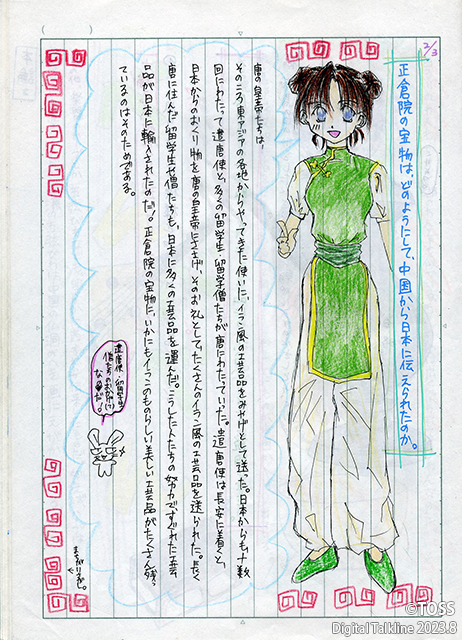 2/3
正倉院の宝物は、どのようにして、中国から日本に伝えられたのか。
唐の皇帝たちは、
そのころ東アジアの各地からやってきた使いに、イラン風の工芸品をみやげとして送った。日本からも、十数
回にわたって遣唐使と、多くの留学生・留学僧たちが唐にわたっていた。遣唐使は長安に着くと、
日本からのおくり物を唐の皇帝にささげ、そのお礼として、たくさんのイラン風の工芸品を送られた。長く
唐に住んだ留学生や僧たちも、日本に多くの工芸品を運んだ。こうした人たちの努力ですぐれた工芸
品が日本に輸入されたのだ!正倉院の宝物に、いかにもイランのものらしい美しい工芸品がたくさん残っ
ているのはそのためである。
遣唐使・留学生
僧たちのおかげ(?)
だ!
©TOSS
Digital Talkline 2023.8